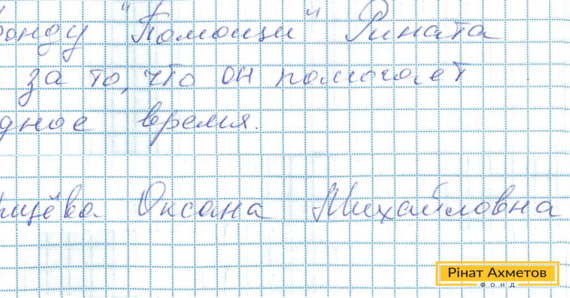 онду "Помощи" Рината
за то, что он помогает
дное время.
ищёва Оксана Михайловна
Рінат Ахметов
ФОНД